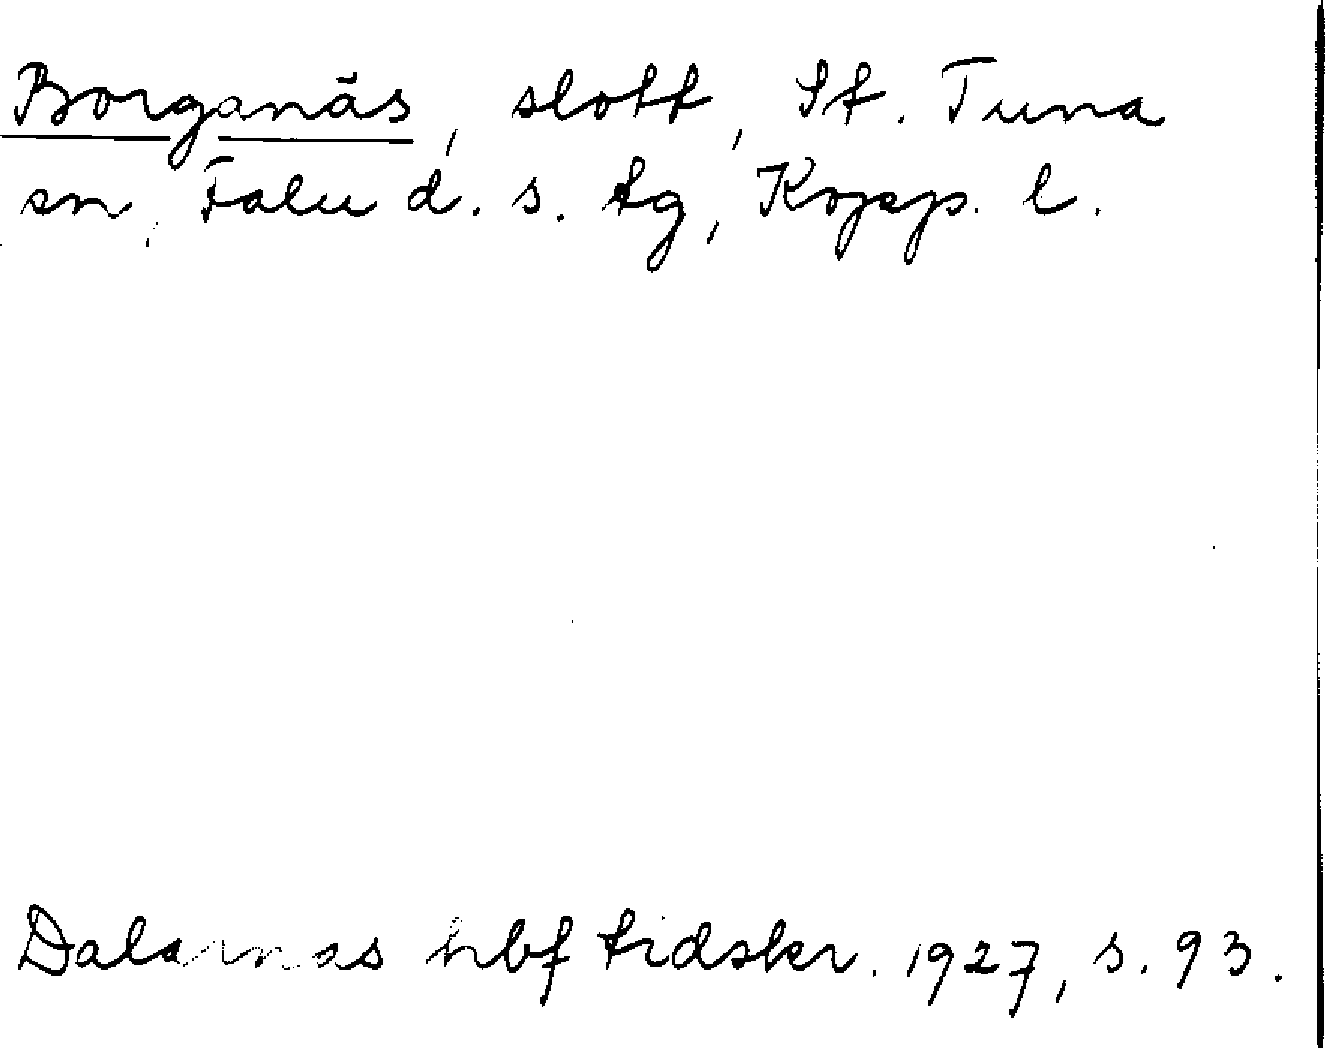 Borganäs, slott, St. Tuna
sn, Falu d. s. tg, Kopp. l.
Dalarnas hbf tidskr. 1927, s. 93.